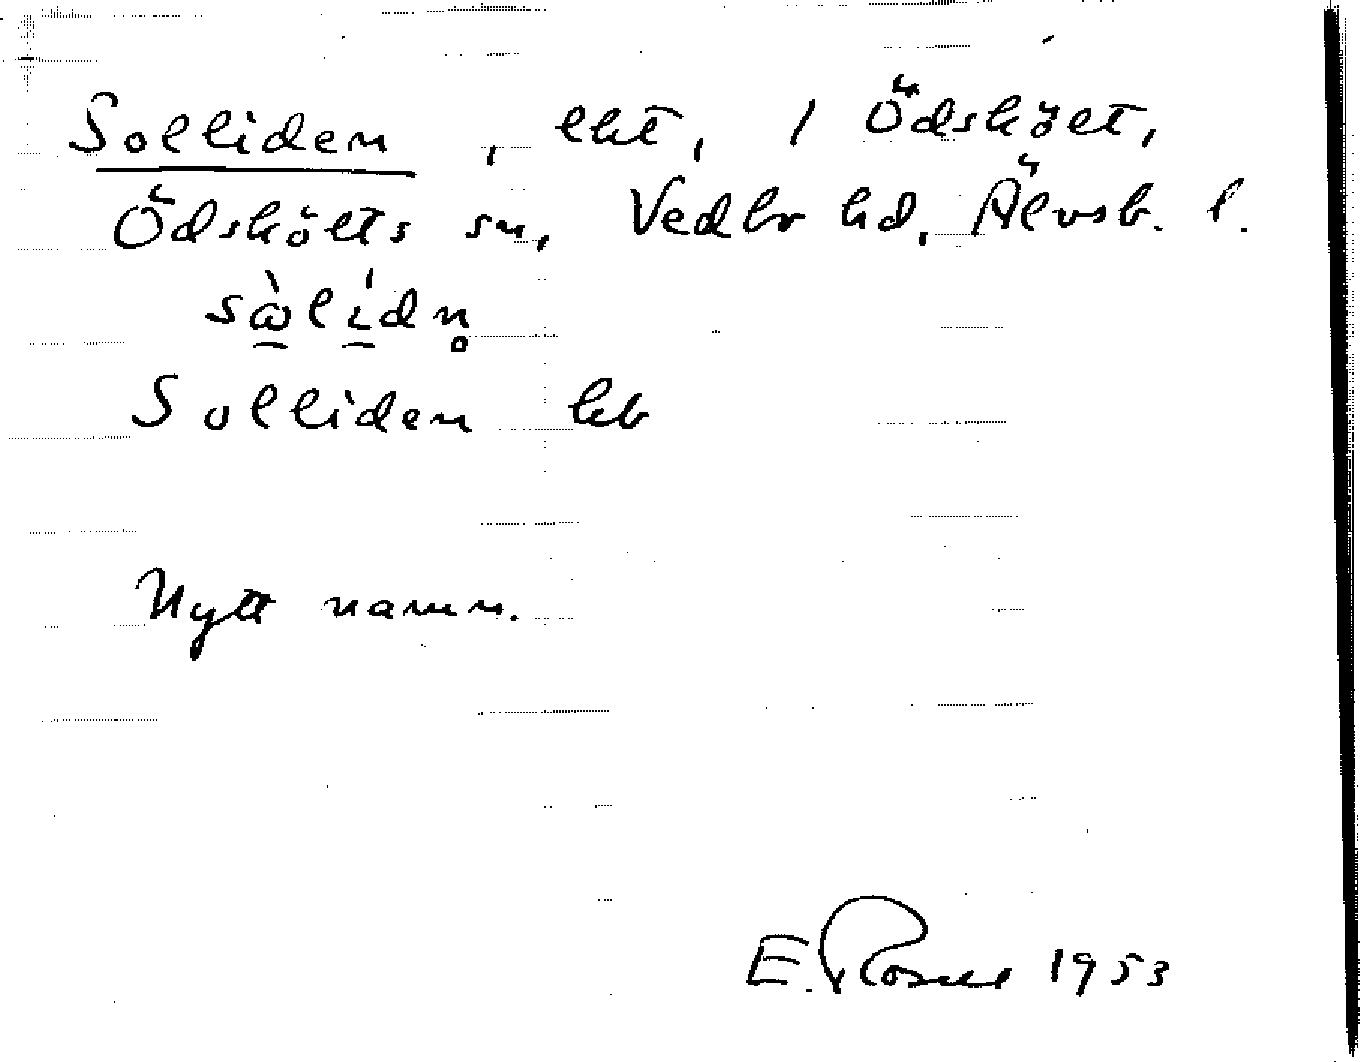 Solliden, lht, 1 Ödskölt,
Ödskölts sn, Vedbo hd, Älvsb. l.
Solliden kb
Nytt namn.
E. Rosell 1953